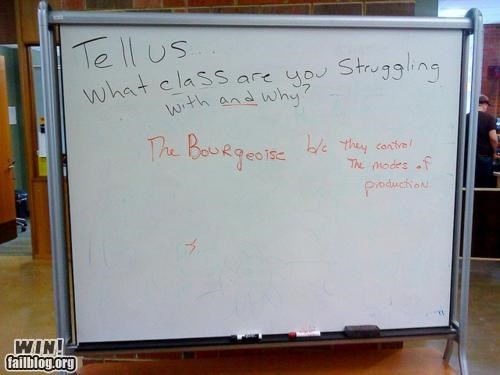 Tell us...
What class are you Struggling
with and why?
The Bourgeoise b/c they control
The modes of
production
WIN!
failblog.org